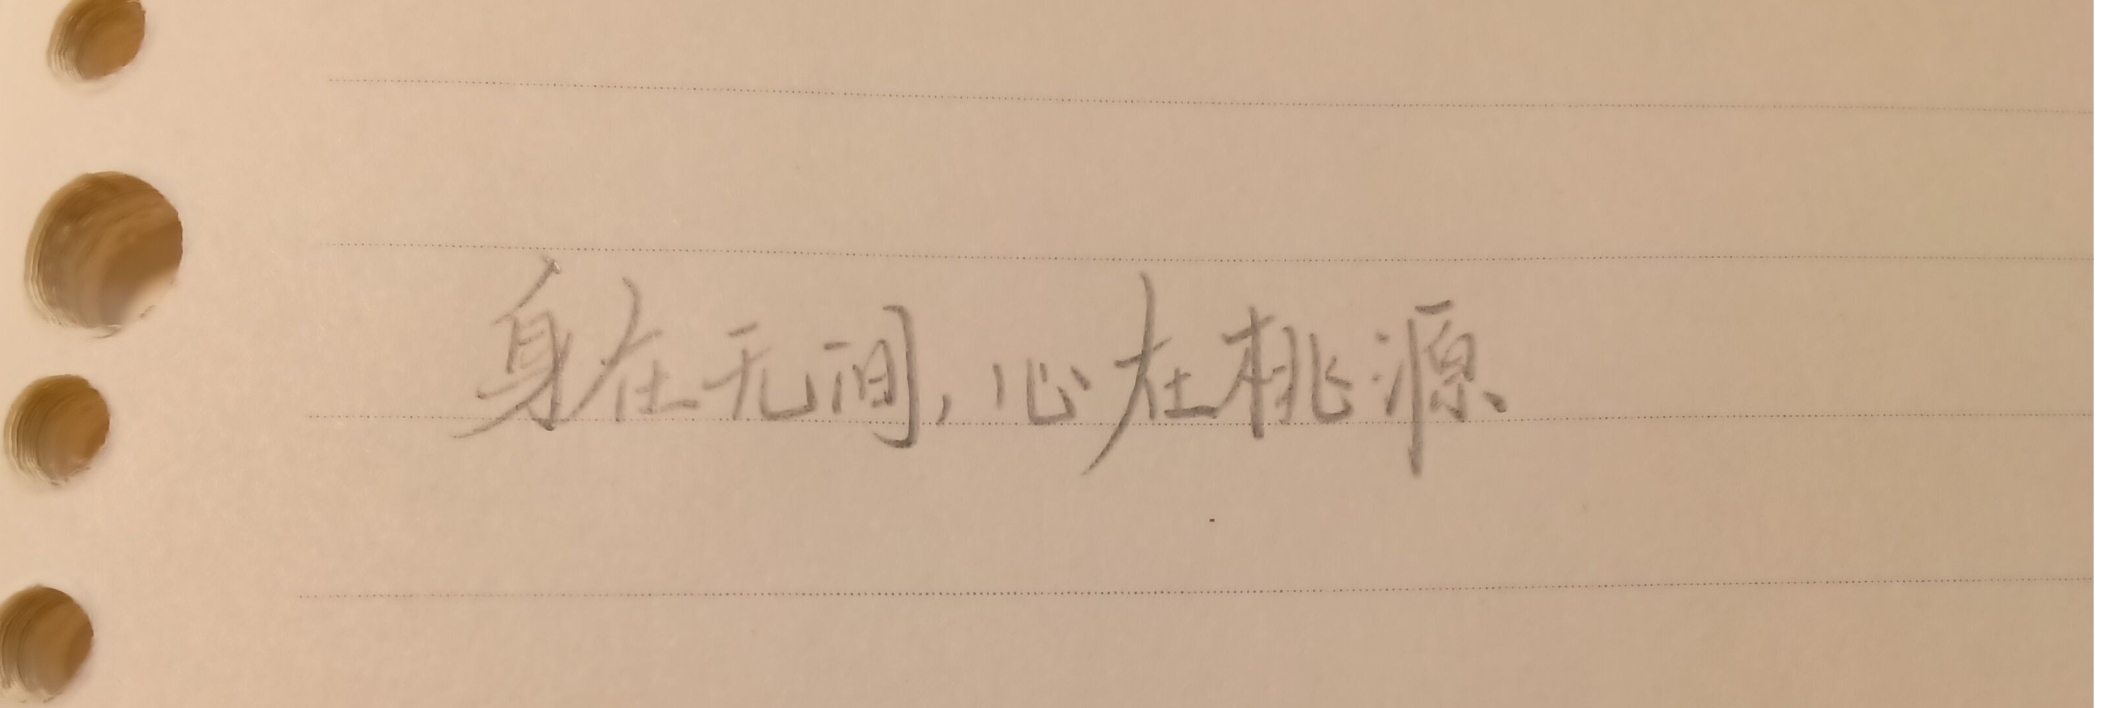 身在无间,心在桃源